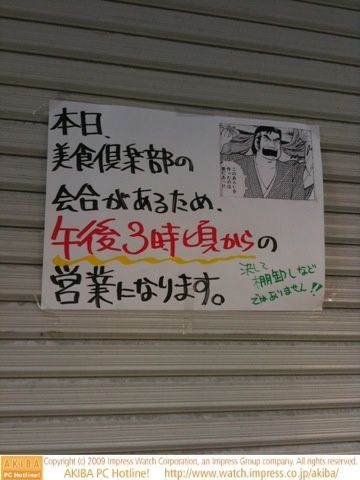 本日、
美食倶楽部の
会合があるため、
午後3時頃からの
営業になります。
このあらいを
作ったのは
誰だあっ!!
決して
棚卸しなど
ではありません!!
AKIBA
PC Hotline!
Copyright (c) 2009 Impress Watch Corporation, an Impress Group company. All rights reserved.
AKIBA PC Hotline! http://www.watch.impress.co.jp/akiba/